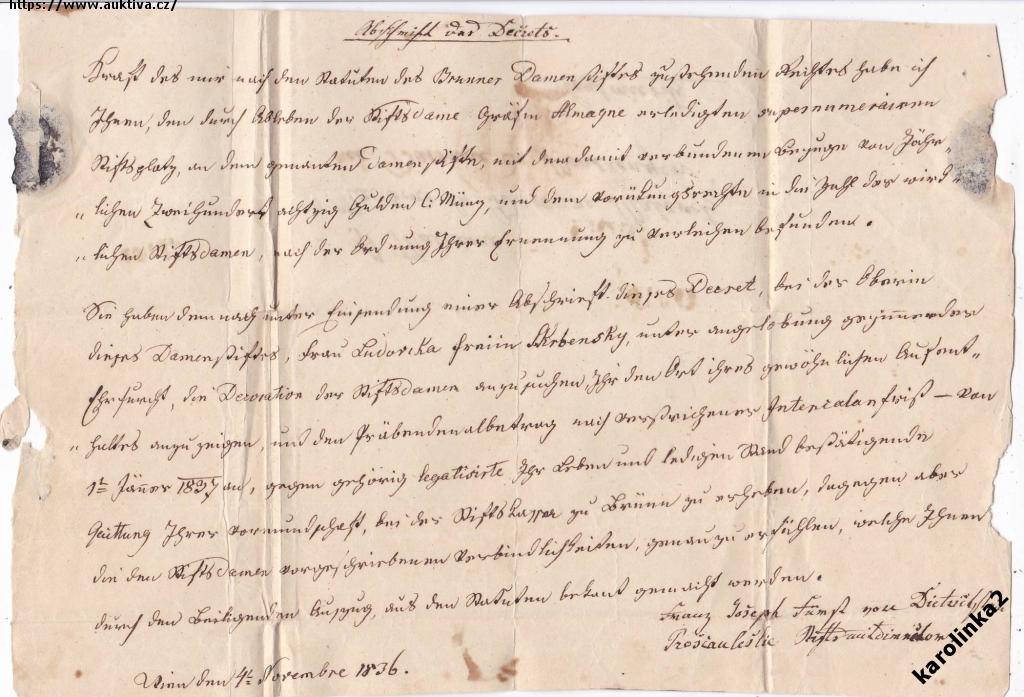 https://www.auktiva.cz/
Abschrift des Decrets.
Kraft des mir nach den Statuten des Brunner Damenstiftes zustehenden Rechtes habe ich
Ihnen, den durch Ableben der Stiftsdame Gräfin Almagne erledigten supernumerairen
Stiftsplatz, an dem genanten Damenstifte, mit dem damit verbundenen Bezuge von Jähr-
„lichen Zweihundert achtzig Gulden C: Münz, und dem Vorükungsrechte in die Zahl der wirk-
„lichen Stiftsdamen, nach der Ordnung Ihrer Ernennung zu verleihen befunden.
Sie haben demnach unter Einsendung einer Abschrift dieses Decret, bei der Oberin
dieses Damenstiftes, Frau Ludovika Freiin Skrbensky, unter angelobung geziemender
Ehrfurcht, die Decoration der Stiftsdamen anzusuchen, Ihr den Ort ihres gewöhnlichen Aufent-
„haltes anzuzeigen, und den Präbendenalbetrag nach verstrichener Intercalarfrist — von
1t Jäner 1837 an, gegen gehörig legalisirte, Ihr Leben und ledigen Stand bestätigende
Quittung Ihrer Vormundschaft, bei der Stiftskassa zu Brünn zu erheben, dagegen aber
die den Stiftsdamen vorgeschriebenen Verbindlichkeiten, genau zu erfühlen, welche Ihnen
durch den Beiligenden Auszug, aus den Statuten bekant gemacht werden.
Franz Joseph Fürst von
Proskau Leslie
Wien den 4t Novembre 1836.
karolinka2